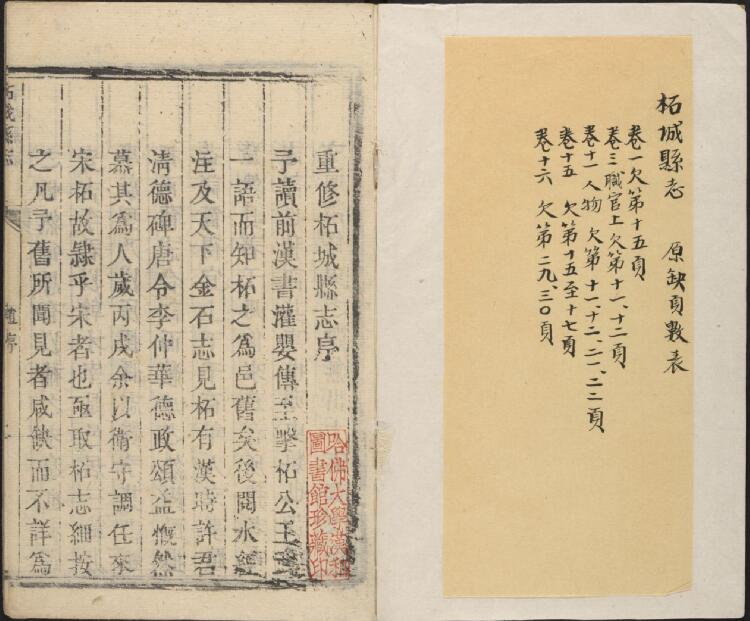 柘城縣志 原缺頁數表
卷一欠第十五頁
卷三職官上欠第十一、十二頁
卷十一人物 欠第十一、十二、二一、二二頁
卷十五 欠第十五至十七頁
卷十六 欠第二九、三〇頁
重修柘城縣志序
予讀前漢書灌嬰傳至擊柘公王武
一語而知柘之爲邑舊矣後閱水經
注及天下金石志見柘有漢時許君
淸德碑唐令李仲華德政頌益慨然
慕其爲人歲丙戌余以衛守調任來
宋柘故隷乎宋者也亟取柘志細按
之凡予舊所聞見者咸缺而不詳爲
柘城縣志
序
哈佛大學漢和
圖書館珍藏印